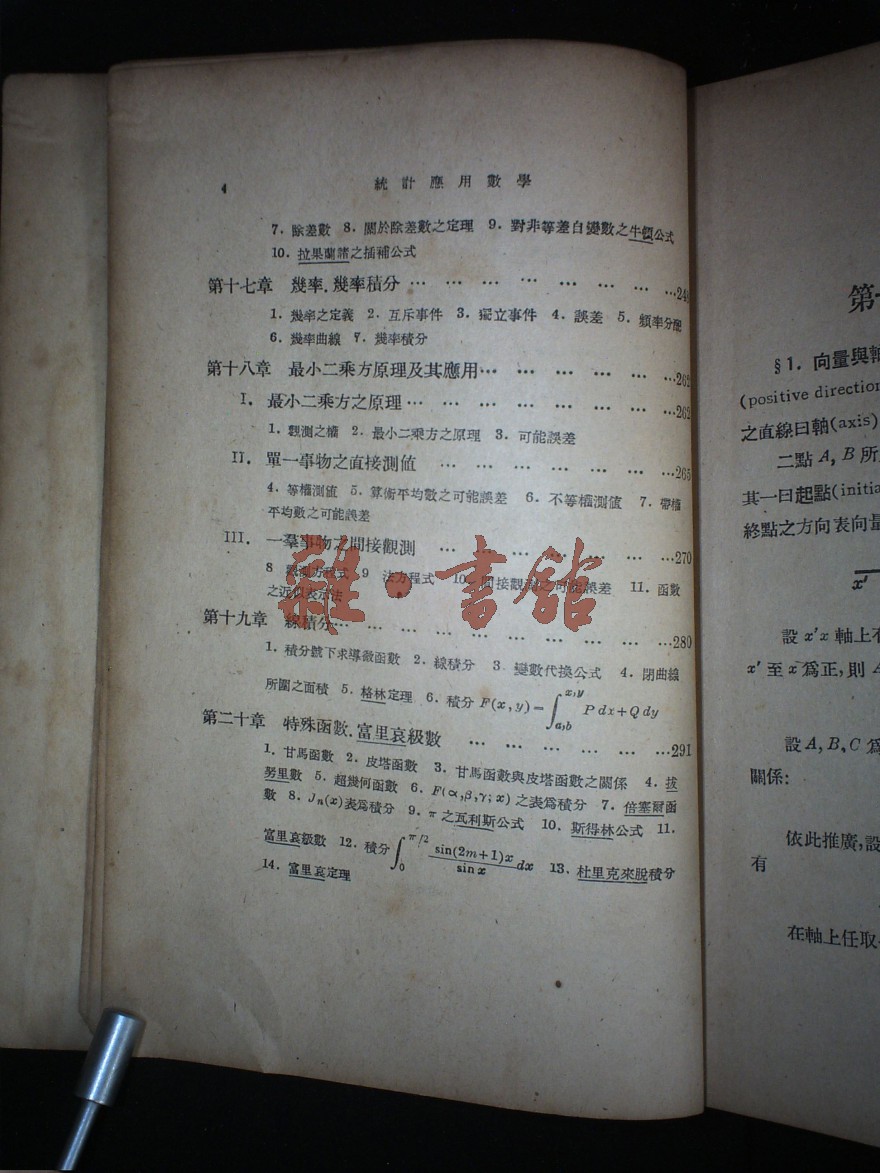 4 統計應用數學
7. 除差數 8. 關於除差數之定理 9. 對非等差自變數之牛頓公式
10. 拉果蘭諸之插補公式
第十七章 幾率.幾率積分 … … … … … … … …24
1. 幾率之定義 2. 互斥事件 3. 獨立事件 4. 誤差 5. 頻率分配
6. 幾率曲線 7. 幾率積分
第十八章 最小二乘方原理及其應用… … … … … …262
I. 最小二乘方之原理… … … … … … … …262
1. 觀測之權 2. 最小二乘方之原理 3. 可能誤差
II. 單一事物之直接測值 … … … … … … …265
4. 等權測值 5. 算術平均數之可能誤差 6. 不等權測值 7. 帶權
平均數之可能誤差
III. 一羣事物之間接觀測 … … … … … … …270
8 觀測方程式 9 法方程式 10. 間接觀測之可能誤差 11. 函數
之近似表示法
雜·書館
第十九章 線積分… … … … … … … … … …280
1. 積分號下求導微函數 2. 線積分 3. 變數代換公式 4. 閉曲線
所圍之面積 5. 格林定理 6. 積分 F(x,y)=∫_{a,b}^{x,y} P dx+Q dy
第二十章 特殊函數.富里哀級數 … … … … … …291
1. 甘馬函數 2. 皮塔函數 3. 甘馬函數與皮塔函數之關係 4. 拔
努里數 5. 超幾何函數 6. F(α,β,γ; x) 之表爲積分 7. 倍塞爾函
數 8. Jn(x)表爲積分 9. π 之瓦利斯公式 10. 斯得林公式 11.
富里哀級數 12. 積分∫_0^{π/2} sin(2m+1)x/sin x dx 13. 杜里克來脫積分
14. 富里哀定理
第
§1. 向量與軸
(positive direction
之直線曰軸(axis)
二點 A, B 所
其一曰起點(initia
終點之方向表向量
x′
設 x′x 軸上有
x′ 至 x 爲正,則 A
設 A, B, C 爲
關係:
依此推廣,設
有
在軸上任取